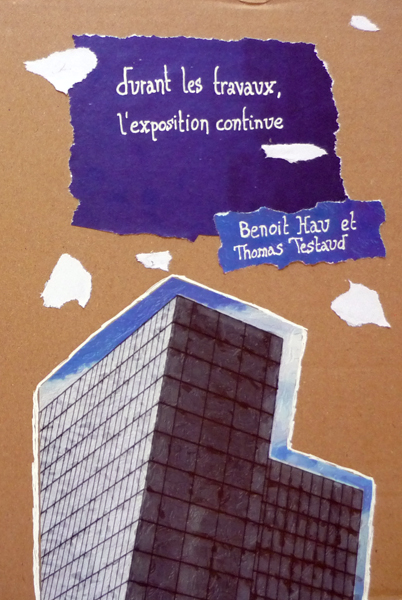 durant les travaux,
l'exposition continue
Benoit Hau et
Thomas Testaud